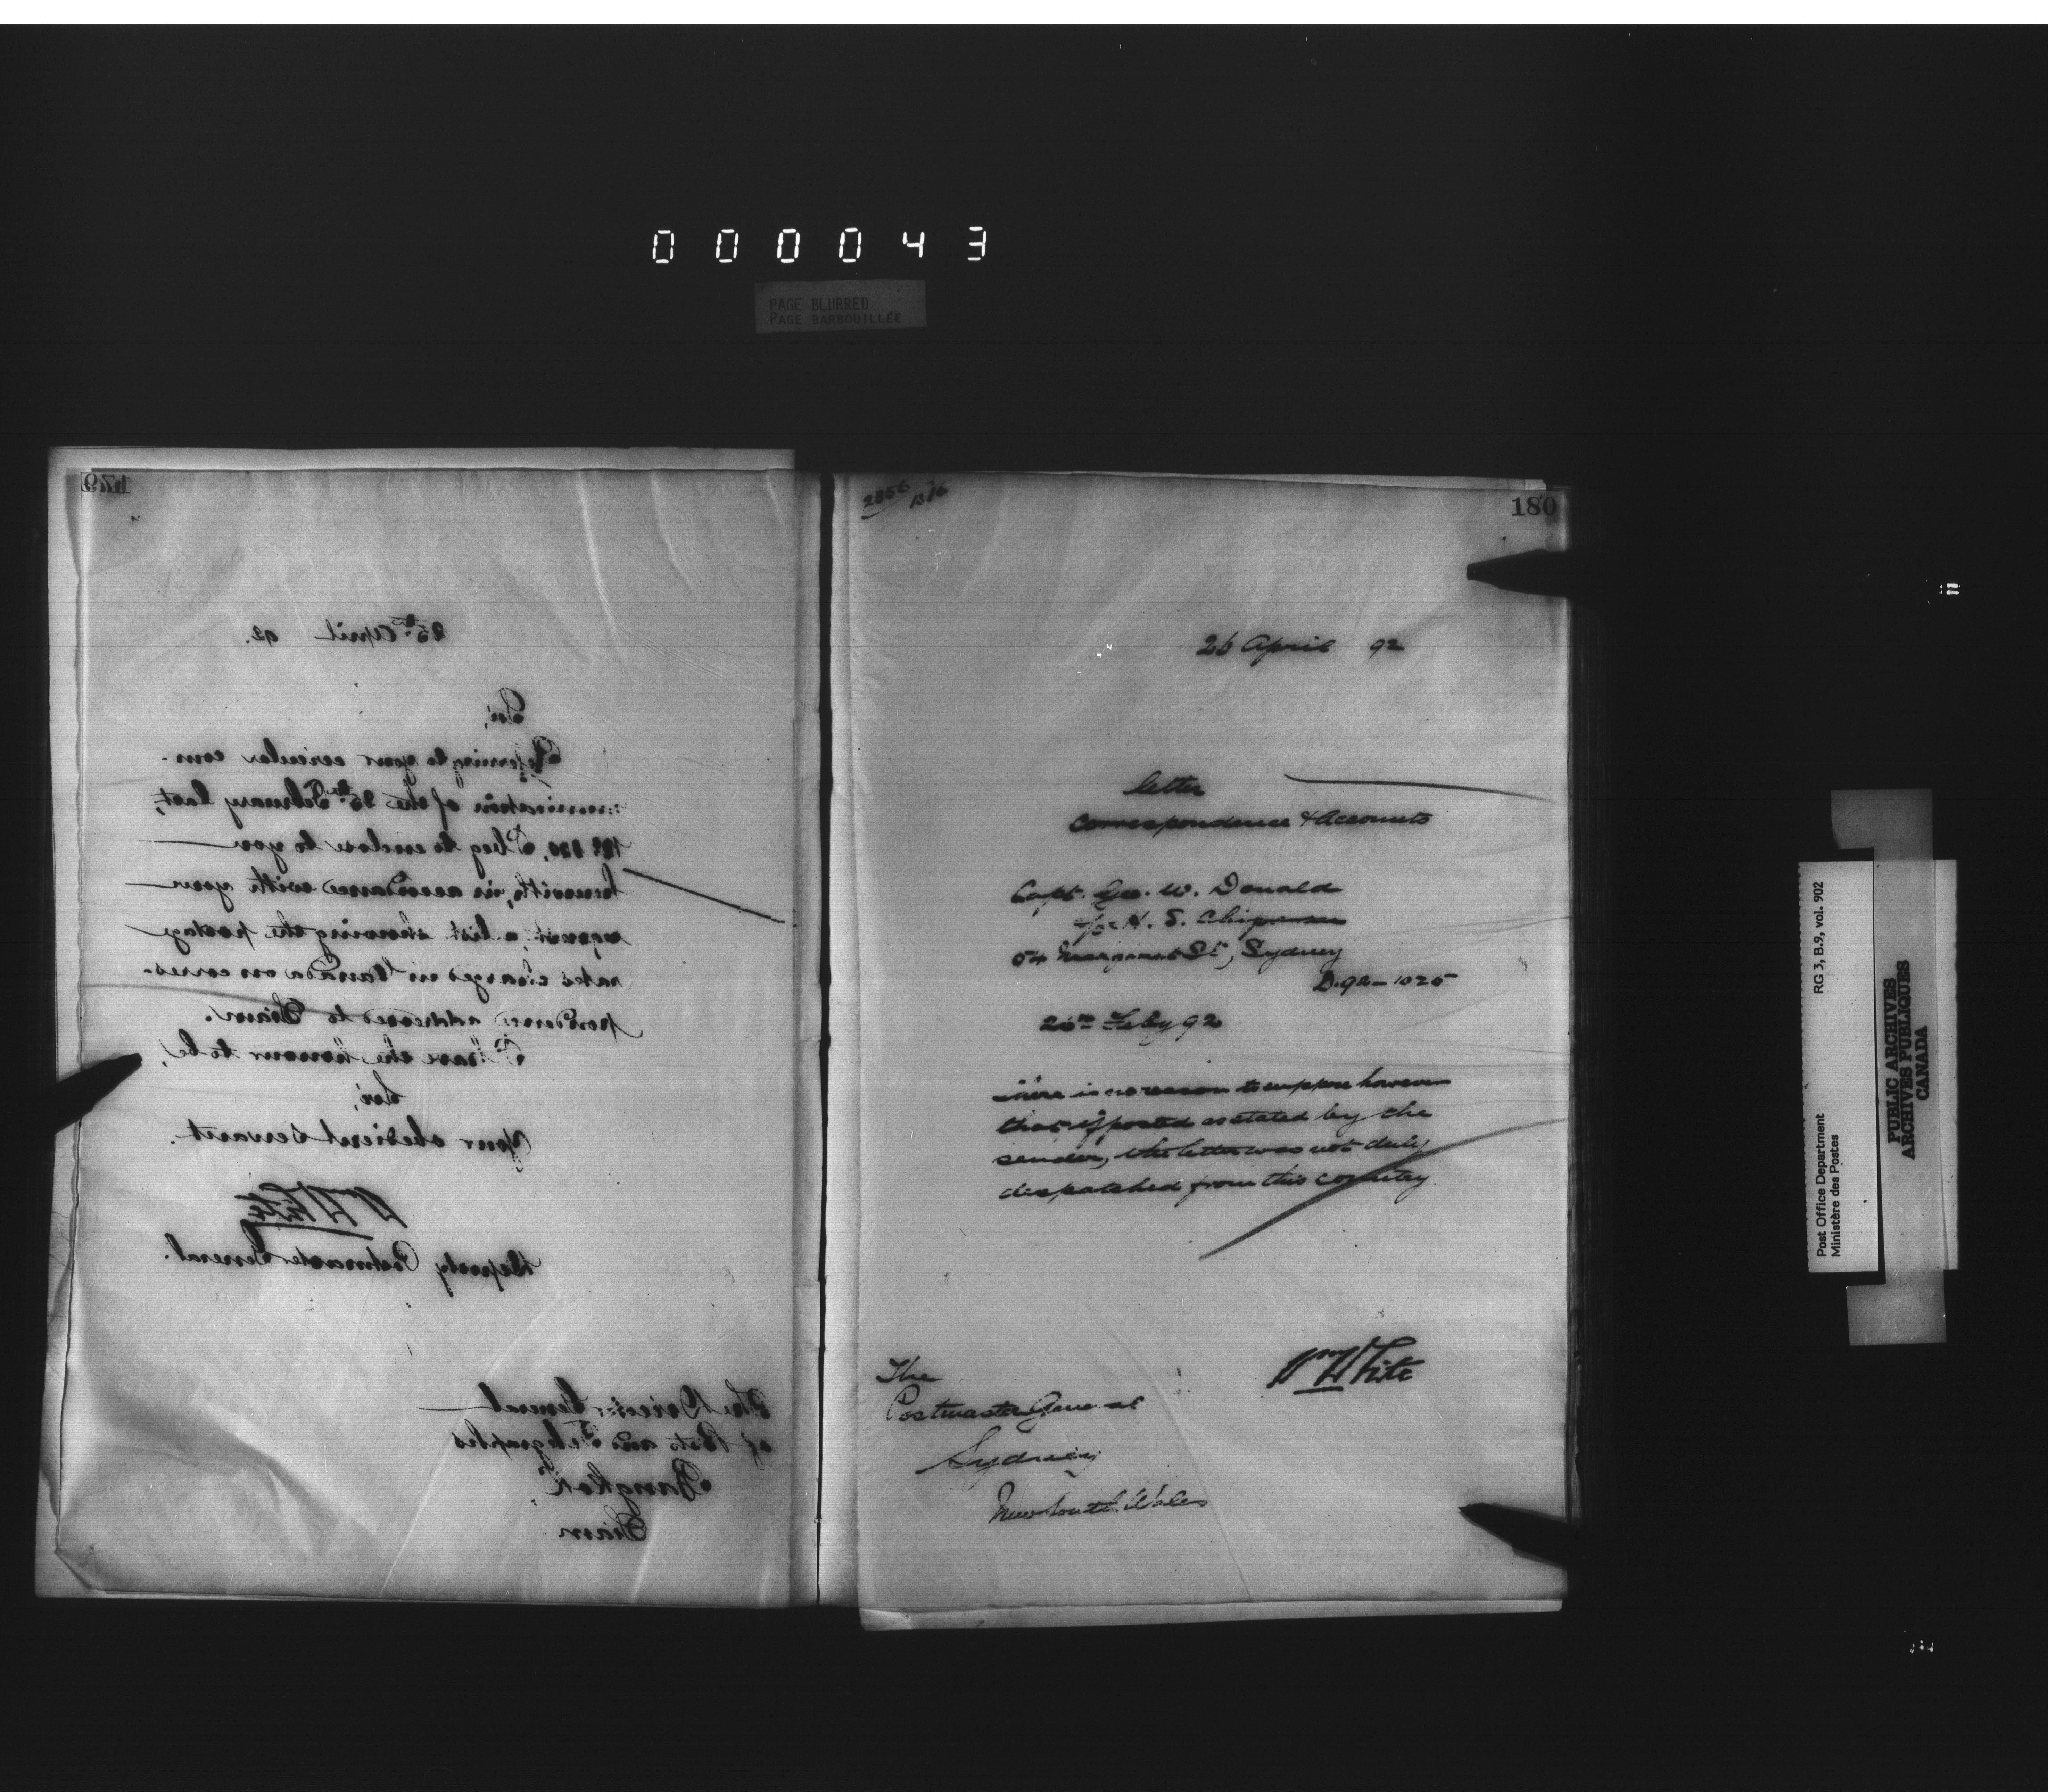 000043
PAGE BLURRED
PAGE BARBOUILLÉE
179
25th April 92.
Sir,
Referring to your circular com-
munication of the 25th February last,
I beg to enclose to you
herewith, in accordance with your
request, a list showing the postage
rates charged in Canada on corres-
pondence addressed to Siam.
I have the honour to be,
Sir,
Your obedient servant.
Wm White
Deputy Postmaster General.
The Director General
of Posts and Telegraphs
Bangkok,
Siam
2856
180
26 April 92
letter
Correspondence & Accounts
Capt. Geo. W. Donald
H. S. Chipman
54 Margaret St, Sydney
D.92-1025
Feby 92
There is no reason to suppose however
that if posted as stated by the
sender, the letter was not duly
dispatched from this country.
Wm White
The
Postmaster General
Sydney
New South Wales
Post Office Department
Ministère des Postes
RG 3, B.9, vol. 902
PUBLIC ARCHIVES
ARCHIVES PUBLIQUES
CANADA